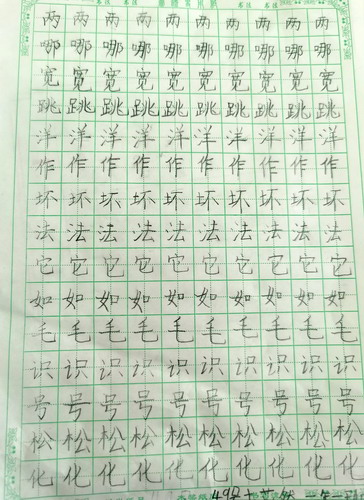 两两两两两两两两两两
哪哪哪哪哪哪哪哪哪哪
宽宽宽宽宽宽宽宽宽宽
跳跳跳跳跳跳跳跳跳跳
洋洋洋洋洋洋洋洋洋洋
作作作作作作作作作作
坏坏坏坏坏坏坏坏坏坏
法法法法法法法法法法
它它它它它它它它它它
如如如如如如如如如如
毛毛毛毛毛毛毛毛毛毛
识识识识识识识识识识
号号号号号号号号号号
松松松松松松松松松松
化化化化化化化化化化